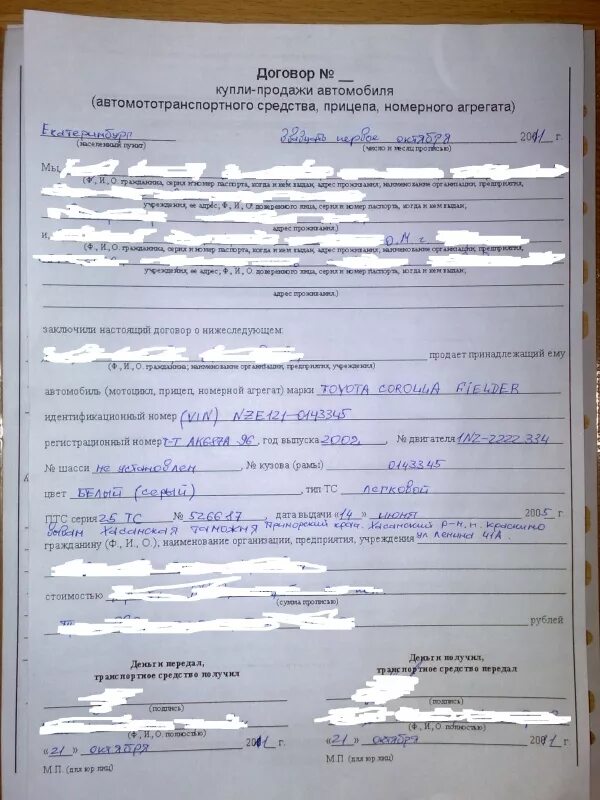 Договор № __
купли-продажи автомобиля
(автомототранспортного средства, прицепа, номерного агрегата)
Екатеринбург двадцать первое октября 2011 г.
(населенный пункт) (число и месяц прописью)
Мы
(Ф., И., О. гражданина, серия и номер паспорта, когда и кем выдан, адрес проживания, наименование организации, предприятия,
учреждения, ее адрес, Ф., И., О. доверенного лица, серия и номер паспорта, когда и кем выдан,
адрес проживания)
и,
(Ф., И., О. гражданина, серия и номер паспорта, когда и кем выдан, адрес проживания, наименование организации, предприятия,
учреждения, ее адрес, Ф., И., О. доверенного лица, серия и номер паспорта, когда и кем выдан,
адрес проживания,)
заключили настоящий договор о нижеследующем:
продает принадлежащий ему
(Ф., И., О. гражданина, наименование организации, предприятия, учреждения)
автомобиль (мотоцикл, прицеп, номерной агрегат) марки TOYOTA COROLLA FIELDER
идентификационный номер (VIN) NZE121-0143345
регистрационный номер Т-Т АК687А 96, год выпуска 2002, № двигателя 1NZ-2222334
№ шасси не установлен № кузова (рамы) 0143345
цвет БЕЛЫЙ (серый), тип ТС легковой
ПТС серия 25 ТС № 526617, дата выдачи «14» июня 2005 г.
выдан Хасанская таможня Приморский край. Хасанский р-н, п. Краскино
гражданину (Ф., И., О.), наименование организации, предприятия, учреждения ул Ленина 41А.
стоимостью
(сумма прописью)
рублей
Деньги передал, Деньги получил,
транспортное средство получил транспортное средство передал
(подпись) (подпись)
(Ф., И., О. полностью) (Ф., И., О. полностью)
«21» октября 2011 г. «21» октября 2011 г.
М.П. (для юр лиц) М.П. (для юр. лиц)